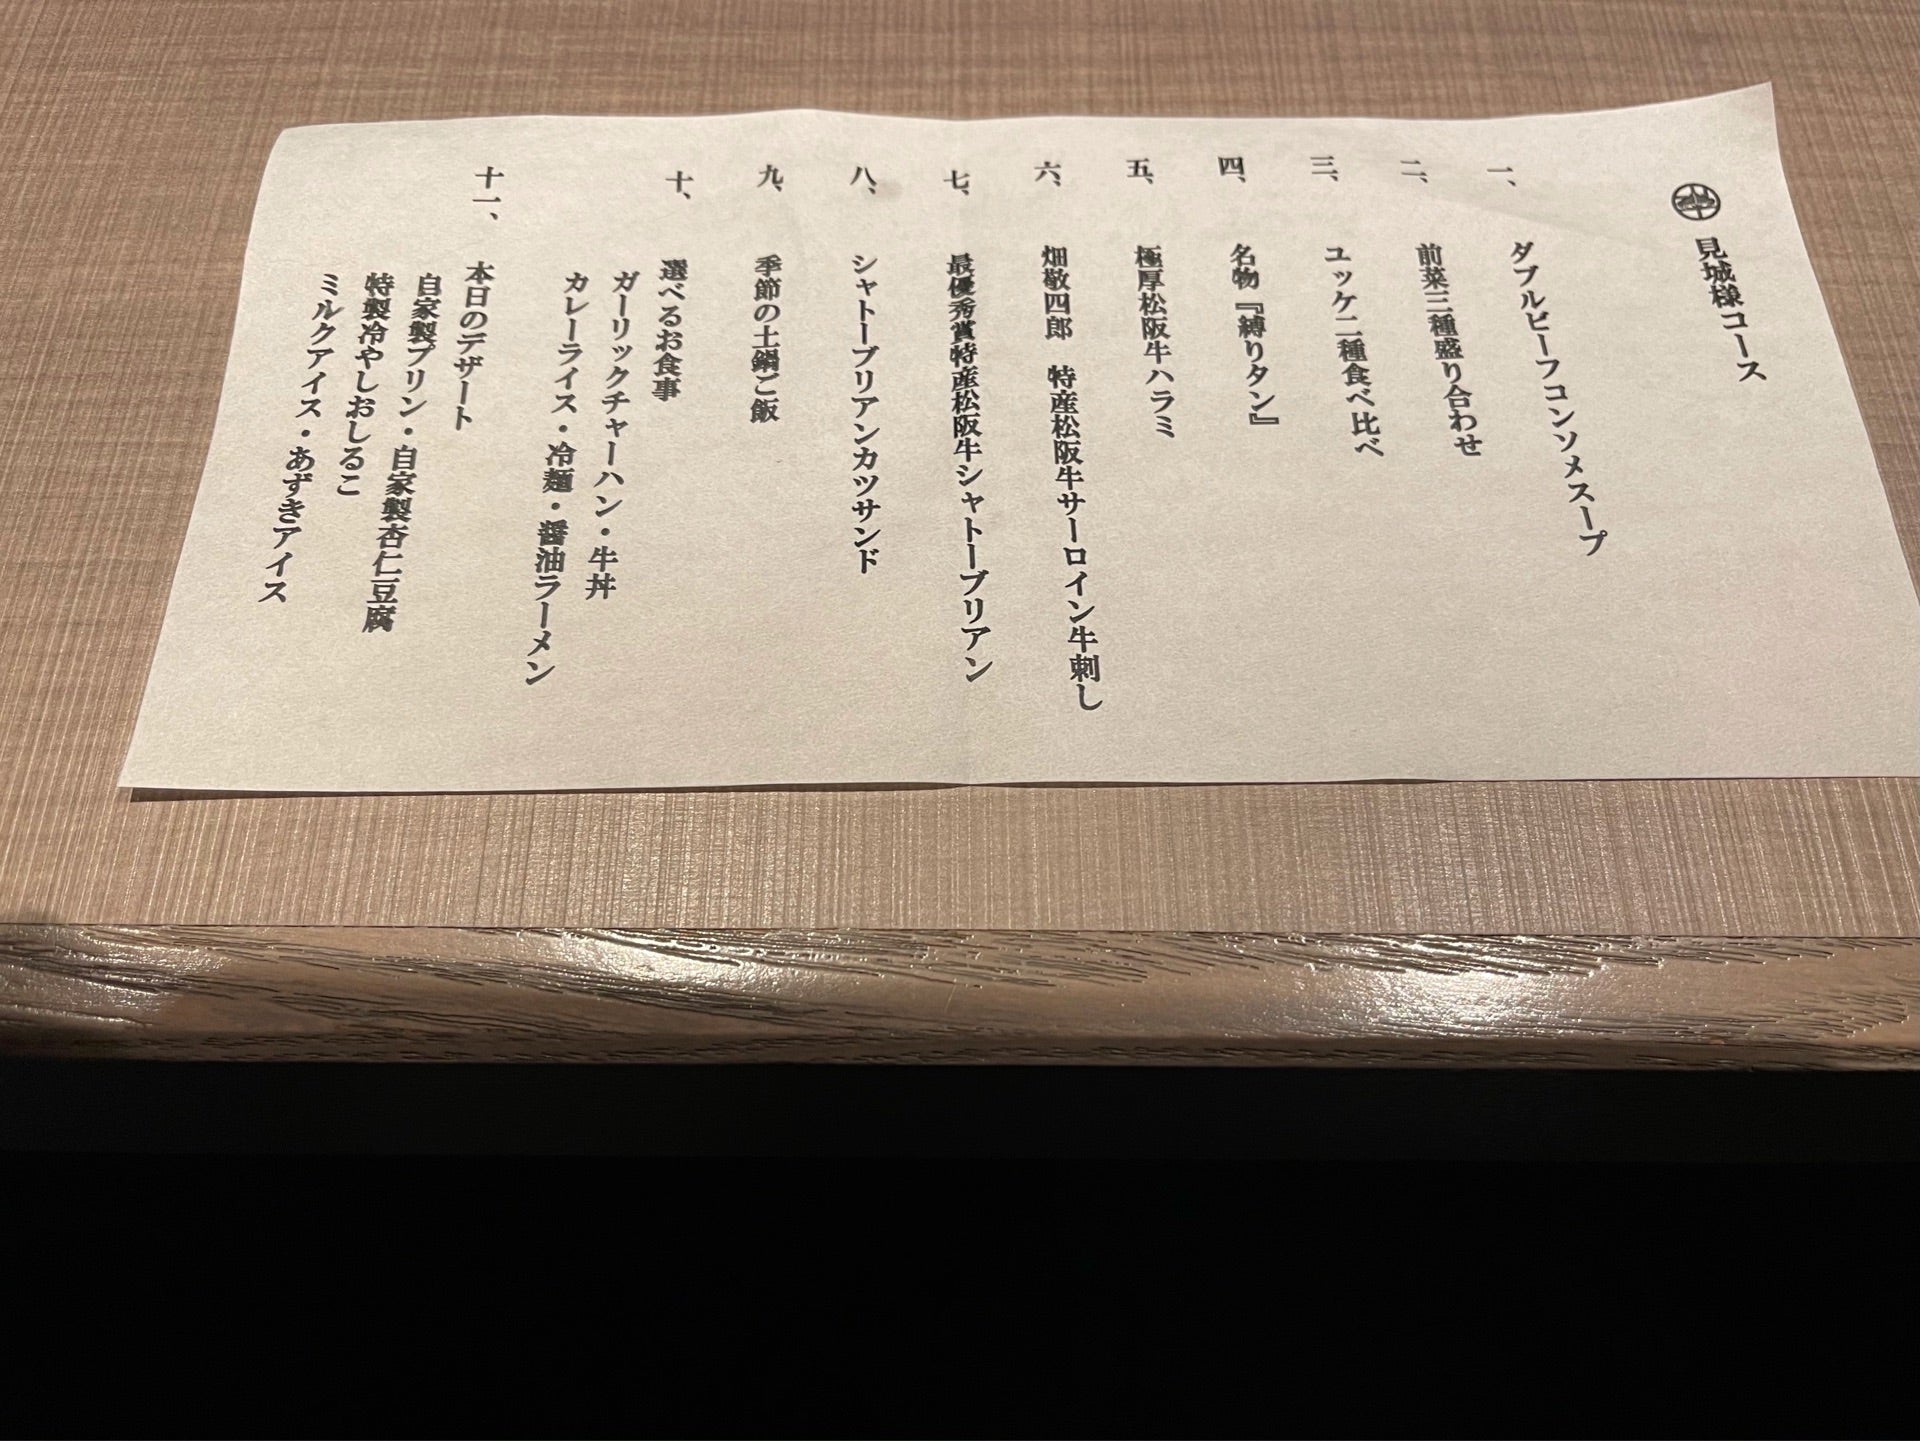 見城様コース
一、 ダブルビーフコンソメスープ
二、 前菜三種盛り合わせ
三、 ユッケ二種食べ比べ
四、 名物『縛りタン』
五、 極厚松阪牛ハラミ
六、 畑敬四郎 特産松阪牛サーロイン牛刺し
七、 最優秀賞特産松阪牛シャトーブリアン
八、 シャトーブリアンカツサンド
九、 季節の土鍋ご飯
十、 選べるお食事
ガーリックチャーハン・牛丼
カレーライス・冷麺・醤油ラーメン
十一、 本日のデザート
自家製プリン・自家製杏仁豆腐
特製冷やしおしるこ
ミルクアイス・あずきアイス